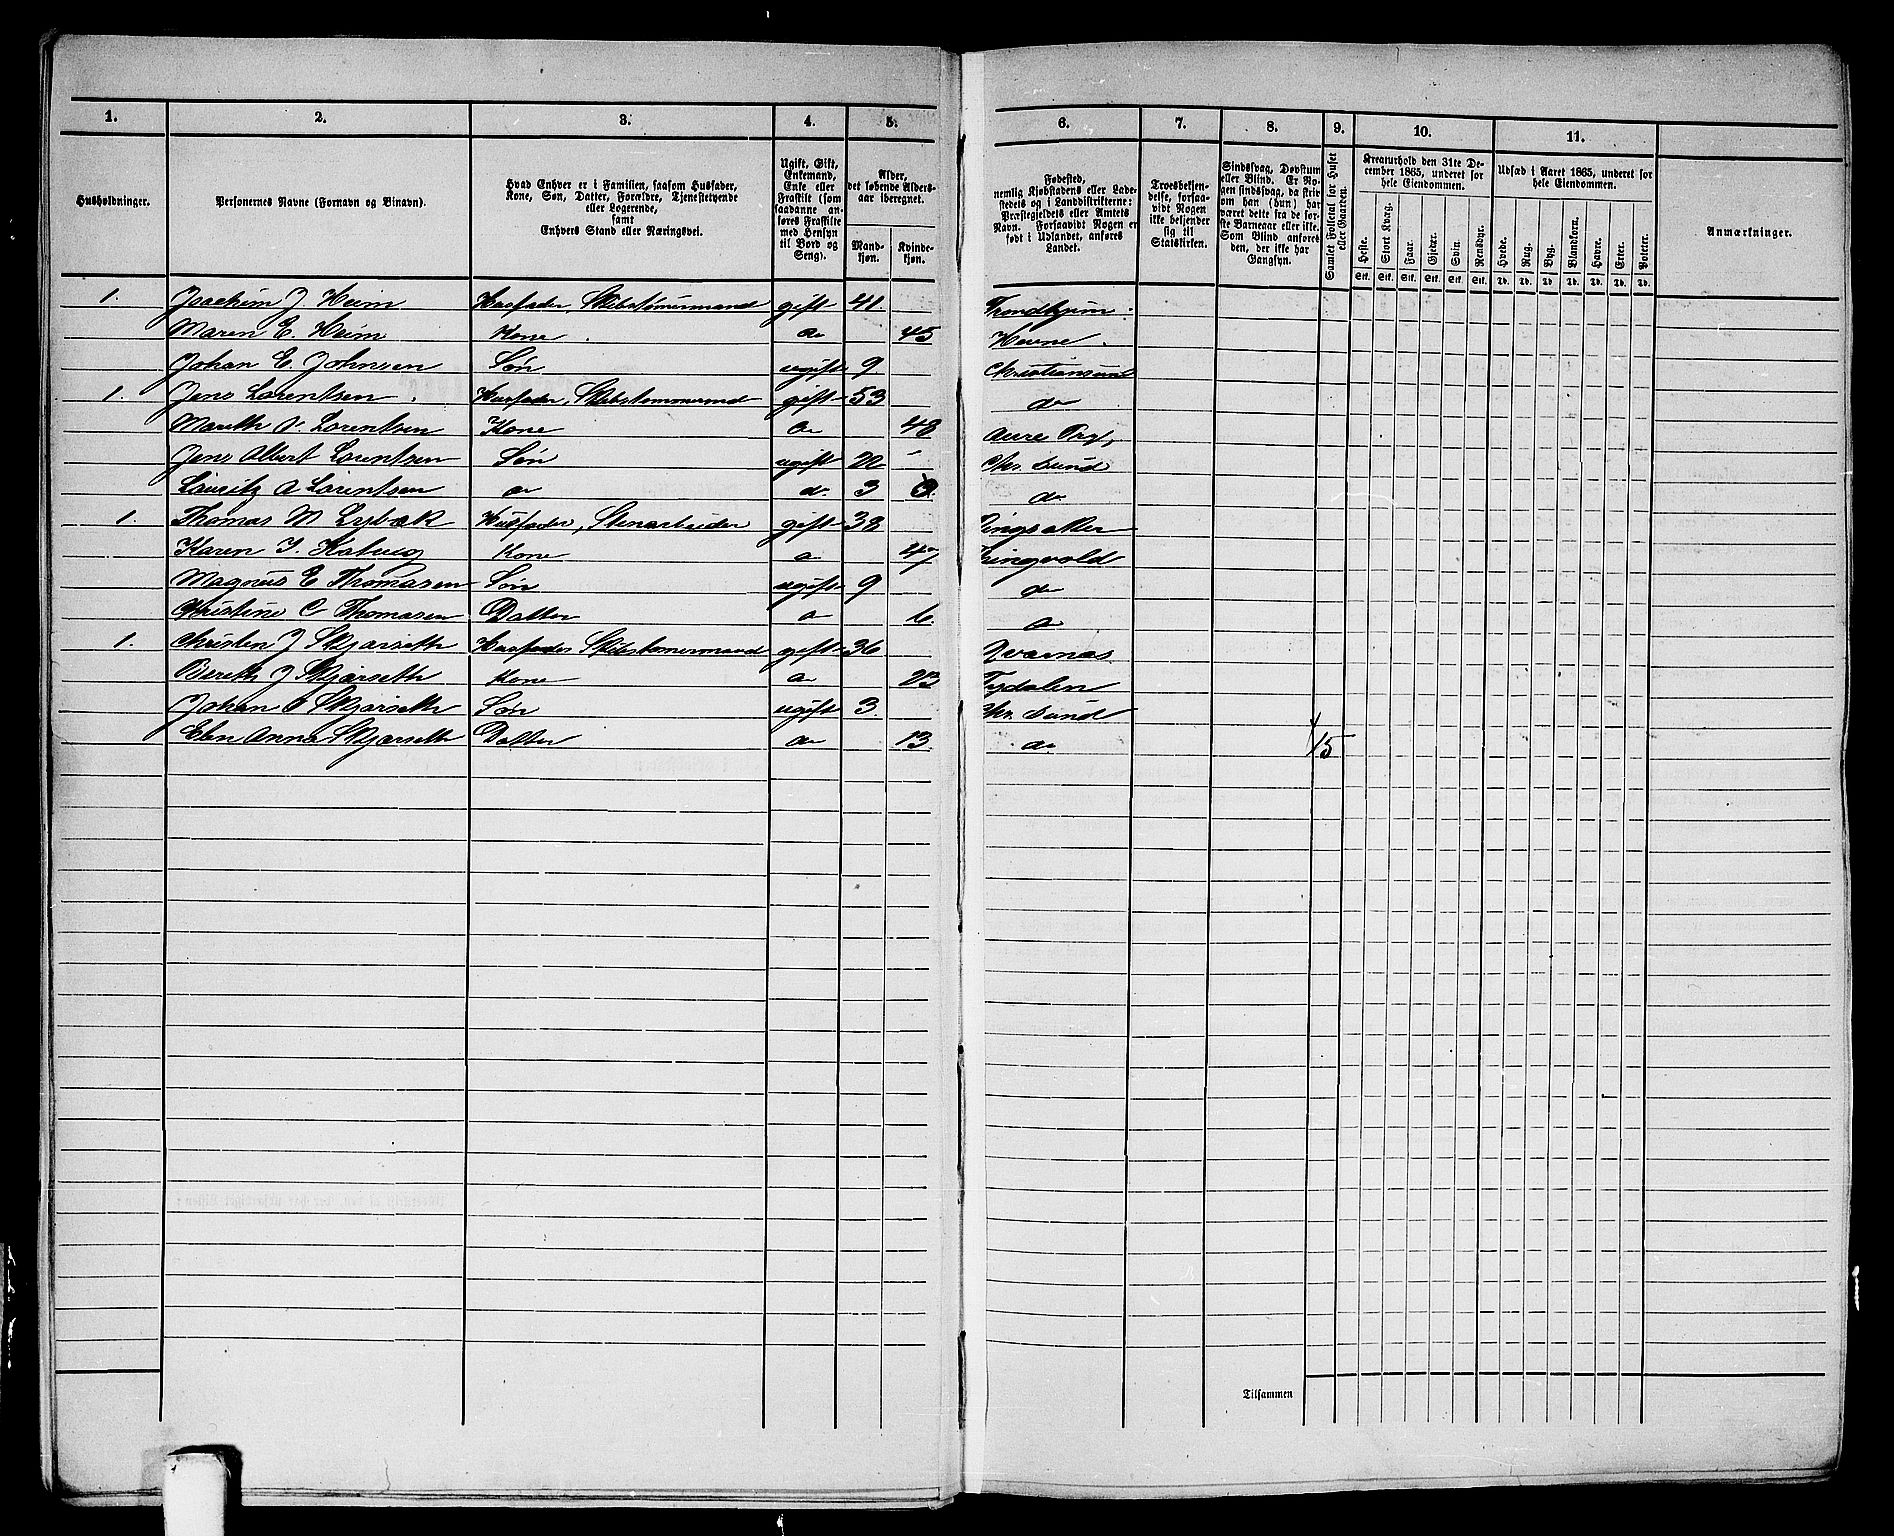 1. 2. 3. 4. 5. 6. 7. 8. 9. 10. 11.
Husholdninger.
Personernes Navne (Fornavn og Binavn).
Hvad Enhver er i Familien, saasom Husfader,
Kone, Søn, Datter, Forældre, Tjenestetyende
eller Logerende,
samt
Enhvers Stand eller Næringsvei.
Ugift, Gift,
Enkemand,
Enke eller
Fraskilt (som
saadanne an-
føres Fraskilte
med Hensyn
til Bord og
Seng).
Alder,
det løbende Alders-
aar iberegnet.
Mand-
kjøn.
Kvinde-
kjøn.
Fødested,
nemlig Kjøbstadens eller Lade-
stedets og i Landdistrikterne:
Præstegjeldets eller Amtets
Navn. Forsaavidt Nogen er
født i Udlandet, anføres
Landet.
Troesbekjen-
delse, forsaa-
vidt Nogen
ikke bekjender
sig til
Statskirken.
Sindssvag, Døvstum
eller Blind. Er No-
gen sindssvag, da skri-
ves om han (hun) har
været dette fra de før-
ste Barneaar eller ikke.
Som Blind anføres
den, der ikke har
Gangsyn.
Samlet Folketal for Huset
eller Gaarden.
Kreaturhold den 31te De-
cember 1865, underet for
hele Eiendommen.
Heste. Stort Kvæg. Faar. Gjeder. Svin. Rensdyr.
Stk. Stk. Stk. Stk. Stk. Stk.
Udsæd i Aaret 1865, underet for
hele Eiendommen.
Hvede. Rug. Byg. Blandkorn. Havre. Erter. Poteter.
Td. Td. Td. Td. Td. Td. Td.
Anmærkninger.
1. Joachim J Heim Husfader, Skibstømmermand gift 41. Trondhjem.
Maren E. Heim Kone do 45 Hevne.
Johan E. Johnsen Søn ugift 9 Christiansund
1. Jens Lorentsen. Husfader, Skibstømmermand gift 53 do
Mareth J. Lorentsen Kone do 48 Aure Prgj,
Jens Albert Lorentsen Søn ugift 22 Chr. Sund
Lauritz A Lorentsen do do 3 do
1. Thomas M Lysbæk Husfader, Stenarbeider gift 38 Ringsaker
Karen I. Kaby do 47 Tingvold
Magnus E Thomasen Søn ugift 9 do
Christine C Thomasen Datter do 6 do
1. Christen J Skjørseth Husfader Skibstømmermand gift 36 Qvernæs
Bereth J Skjørseth Kone do 23 Tydalen
Johan O Skjørseth Søn ugift 3. Chr. Sund
Elen Anna Skjørseth Datter do 13 do 15
Tilsammen